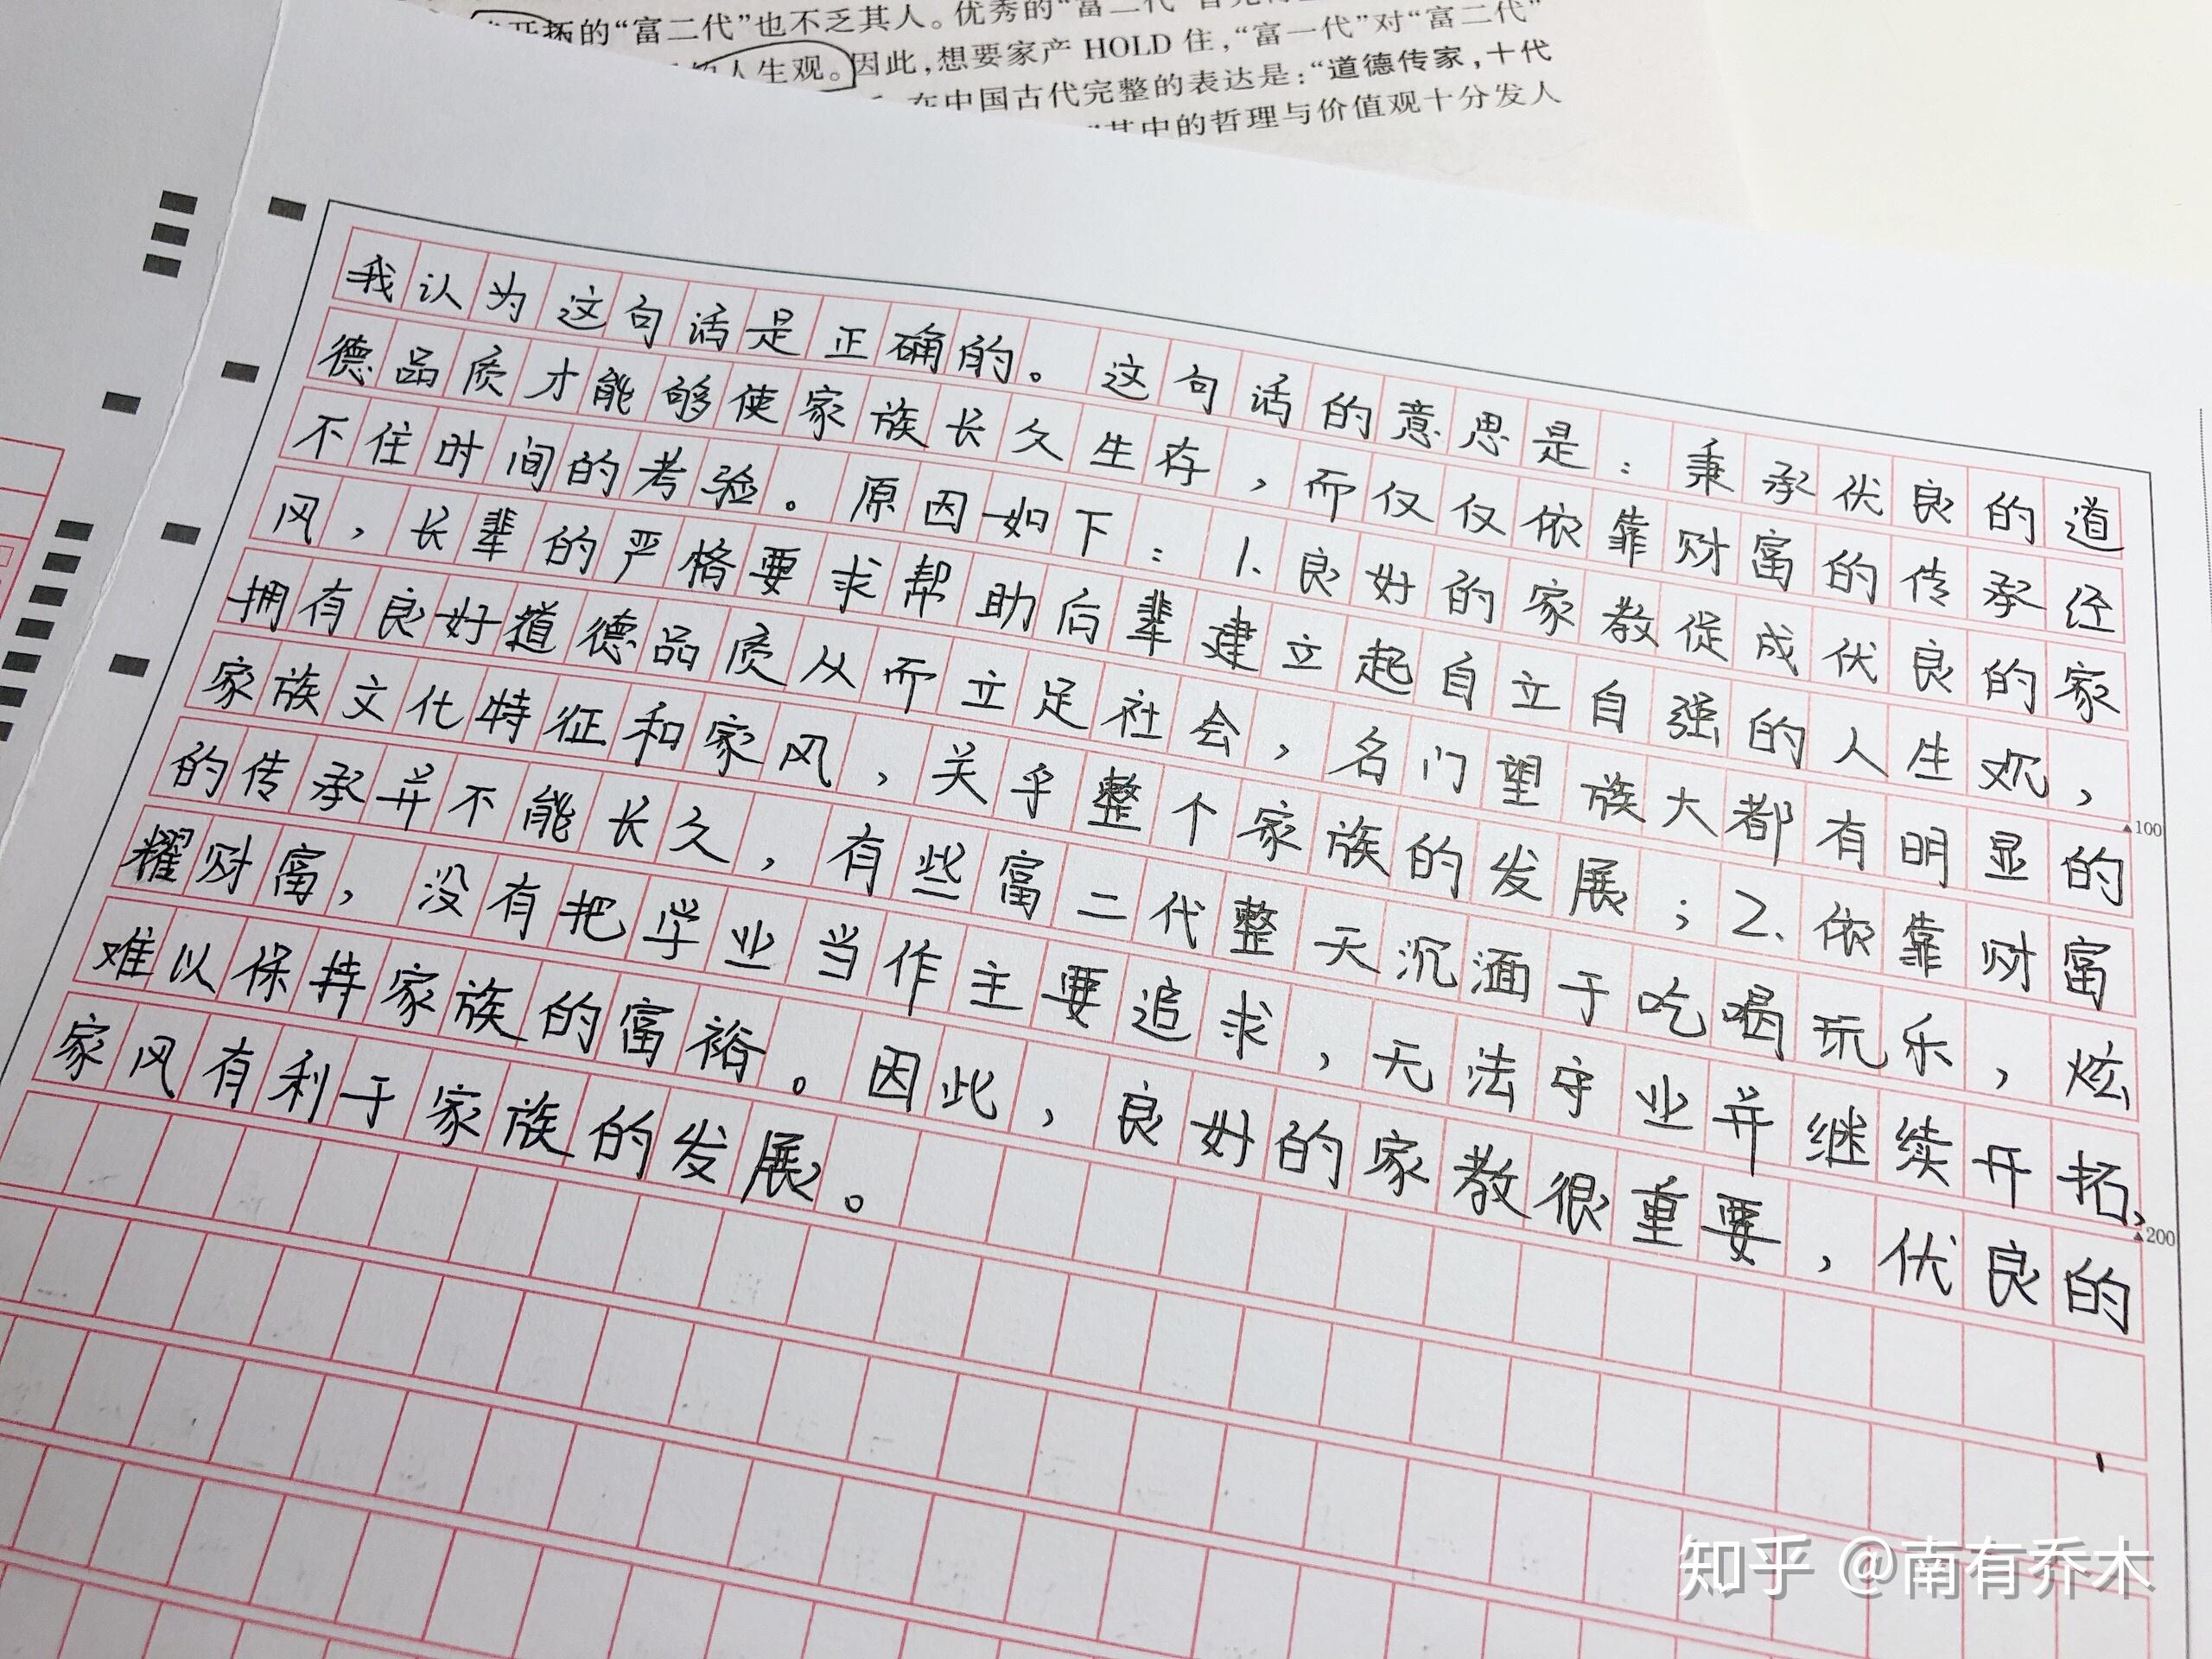 开拓的“富二代”也不乏其人。优秀的“富二代”
人生观。因此,想要家产HOLD住,“富一代”对“富二代”
在中国古代完整的表达是:“道德传家,十代
“其中的哲理与价值观十分发人
我认为这句话是正确的。这句话的意思是：秉承优良的道
德品质才能够使家族长久生存，而仅仅依靠财富的传承经
不住时间的考验。原因如下：1.良好的家教促成优良的家
风，长辈的严格要求帮助后辈建立起自立自强的人生观，
拥有良好道德品质从而立足社会，名门望族大都有明显的
100
家族文化特征和家风，关乎整个家族的发展；2.依靠财富
的传承并不能长久，有些富二代整天沉湎于吃喝玩乐，炫
耀财富，没有把学业当作主要追求，无法守业并继续开拓，
200
难以保持家族的富裕。因此，良好的家教很重要，优良的
家风有利于家族的发展。
知乎 @南有乔木